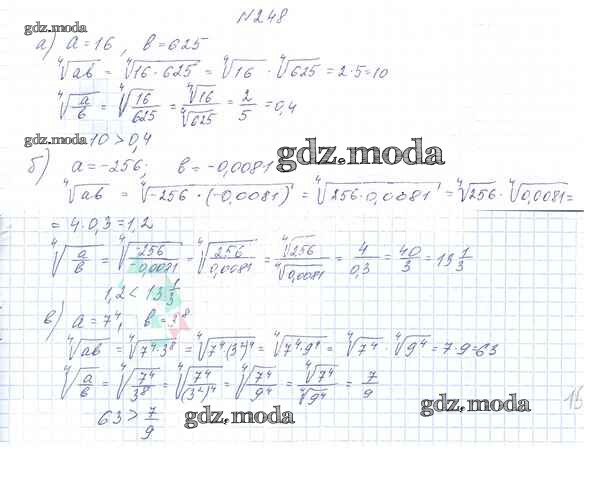 №248
gdz.moda
а) a = 16, b = 625
⁴√ab = ⁴√16·625 = ⁴√16 · ⁴√625 = 2·5 = 10
⁴√a/b = ⁴√16/625 = ⁴√16/⁴√625 = 2/5 = 0,4
gdz.moda 10 > 0,4
gdz.moda
б) a = -256; b = -0,0081
⁴√ab = ⁴√-256·(-0,0081) = ⁴√256·0,0081 = ⁴√256 · ⁴√0,0081 =
= 4·0,3 = 1,2
⁴√a/b = ⁴√-256/-0,0081 = ⁴√256/0,0081 = ⁴√256/⁴√0,0081 = 4/0,3 = 40/3 = 13 1/3
1,2 < 13 1/3
в) a = 7⁴, b = 3⁸
⁴√ab = ⁴√7⁴·3⁸ = ⁴√7⁴(3²)⁴ = ⁴√7⁴·9⁴ = ⁴√7⁴ · ⁴√9⁴ = 7·9 = 63
⁴√a/b = ⁴√7⁴/3⁸ = ⁴√7⁴/(3²)⁴ = ⁴√7⁴/9⁴ = ⁴√7⁴/⁴√9⁴ = 7/9
63 > 7/9
gdz.moda
gdz.moda